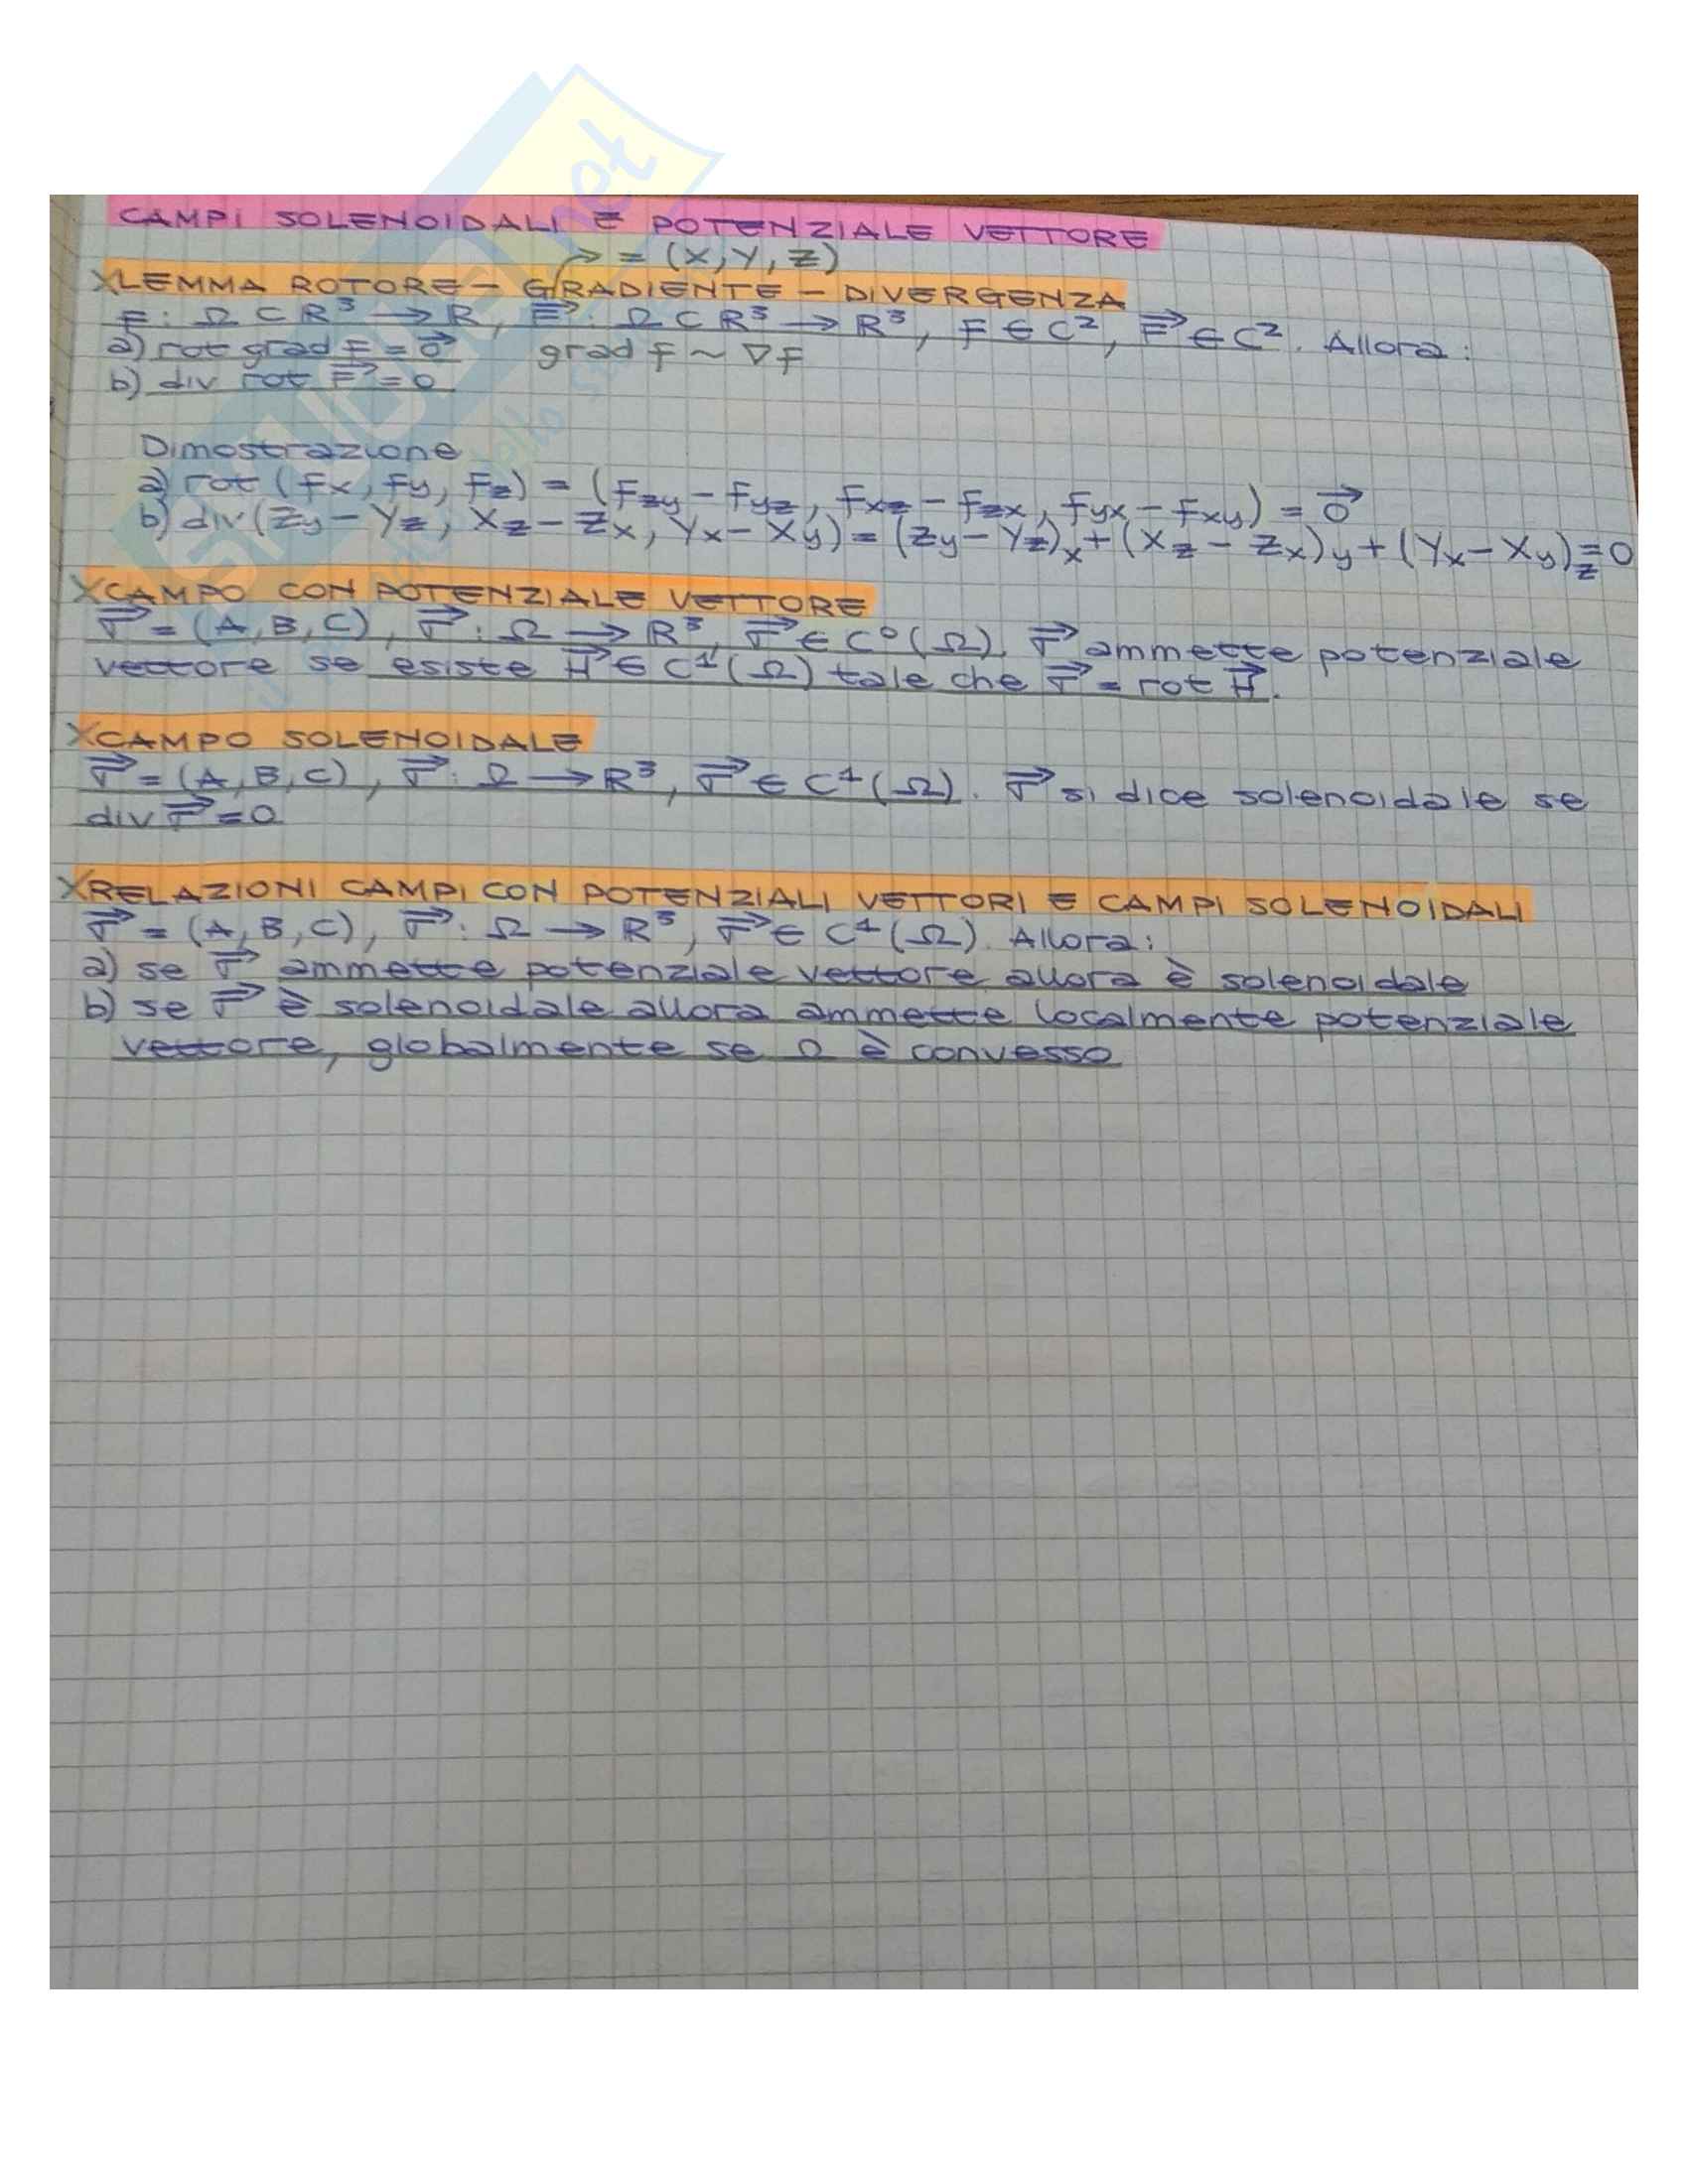 CAMPI SOLENOIDALI E POTENZIALE VETTORE
→ = (X, Y, Z)
XLEMMA ROTORE - GRADIENTE - DIVERGENZA
F: Ω ⊂ R³ → R, F⃗: Ω ⊂ R³ → R³, F ∈ C², F⃗ ∈ C². Allora:
a) rot grad F = 0⃗ grad f ~ ∇F
b) div rot F⃗ = 0
Dimostrazione
a) rot (fx, fy, fz) = (fzy - fyz, fxz - fzx, fyx - fxy) = 0⃗
b) div (Zy - Yz, Xz - Zx, Yx - Xy) = (Zy - Yz)x + (Xz - Zx)y + (Yx - Xy)z = 0
XCAMPO CON POTENZIALE VETTORE
F⃗ = (A, B, C), F⃗: Ω → R³, F⃗ ∈ C⁰(Ω). F⃗ ammette potenziale
vettore se esiste H⃗ ∈ C¹(Ω) tale che F⃗ = rot H⃗.
XCAMPO SOLENOIDALE
F⃗ = (A, B, C), F⃗: Ω → R³, F⃗ ∈ C¹(Ω). F⃗ si dice solenoidale se
div F⃗ = 0
XRELAZIONI CAMPI CON POTENZIALI VETTORI E CAMPI SOLENOIDALI
F⃗ = (A, B, C), F⃗: Ω → R³, F⃗ ∈ C¹(Ω). Allora:
a) se F⃗ ammette potenziale vettore allora è solenoidale
b) se F⃗ è solenoidale allora ammette localmente potenziale
vettore, globalmente se Ω è convesso